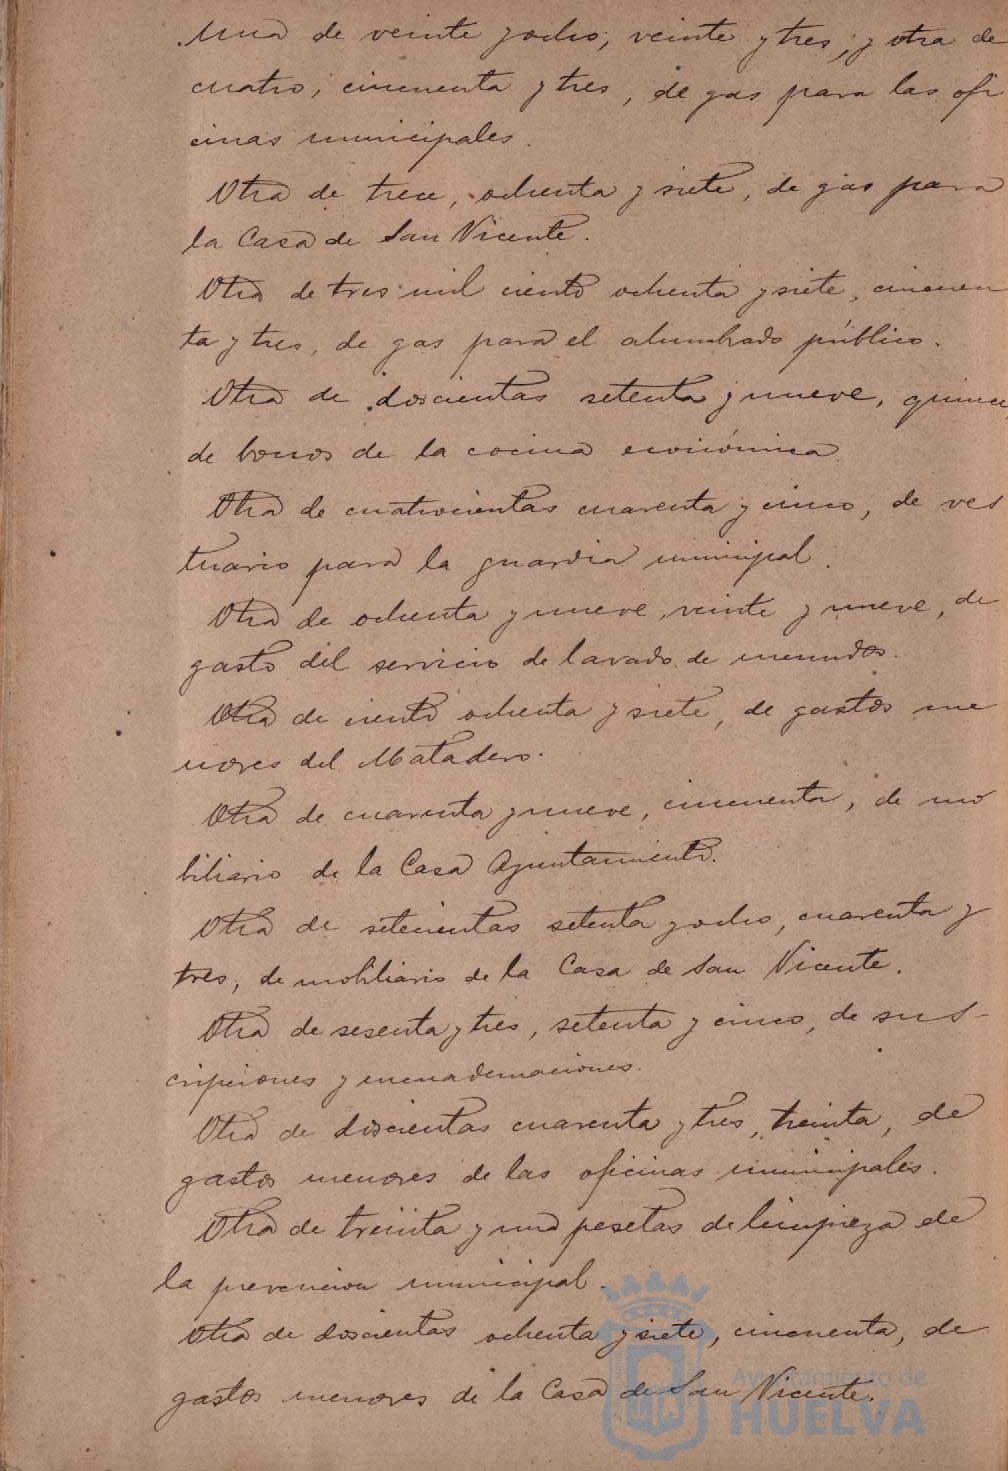 Una de veinte y ocho, veinte y tres, y otra de
cuatro, cincuenta y tres, de gas para las ofi
cinas municipales.
Otra de trece, ochenta y siete, de gas para
la Casa de San Vicente.
Otra de tres mil ciento ochenta y siete, cincuen
ta y tres, de gas para el alumbrado público.
Otra de doscientas setenta y nueve, quince,
de bonos de la cocina económica
Otra de cuatrocientas cuarenta y cinco, de ves
tuario para la guardia municipal.
Otra de ochenta y nueve, veinte y nueve, de
gasto del servicio de lavado de menudos.
Otra de ciento ochenta y siete, de gastos me
nores del Matadero.
Otra de cuarenta y nueve, cincuenta, de mo
biliario de la Casa Ayuntamiento.
Otra de setecientas setenta y ocho, cuarenta y
tres, de mobiliario de la Casa de San Vicente.
Otra de sesenta y tres, setenta y cinco, de sus-
cripciones y encuadernaciones.
Otra de doscientas cuarenta y tres, treinta, de
gastos menores de las oficinas municipales.
Otra de treinta y una pesetas de limpieza de
la prevencion municipal.
Otra de doscientas ochenta y siete, cincuenta, de
gastos menores de la Casa de San Vicente.
Ayuntamiento de
HUELVA